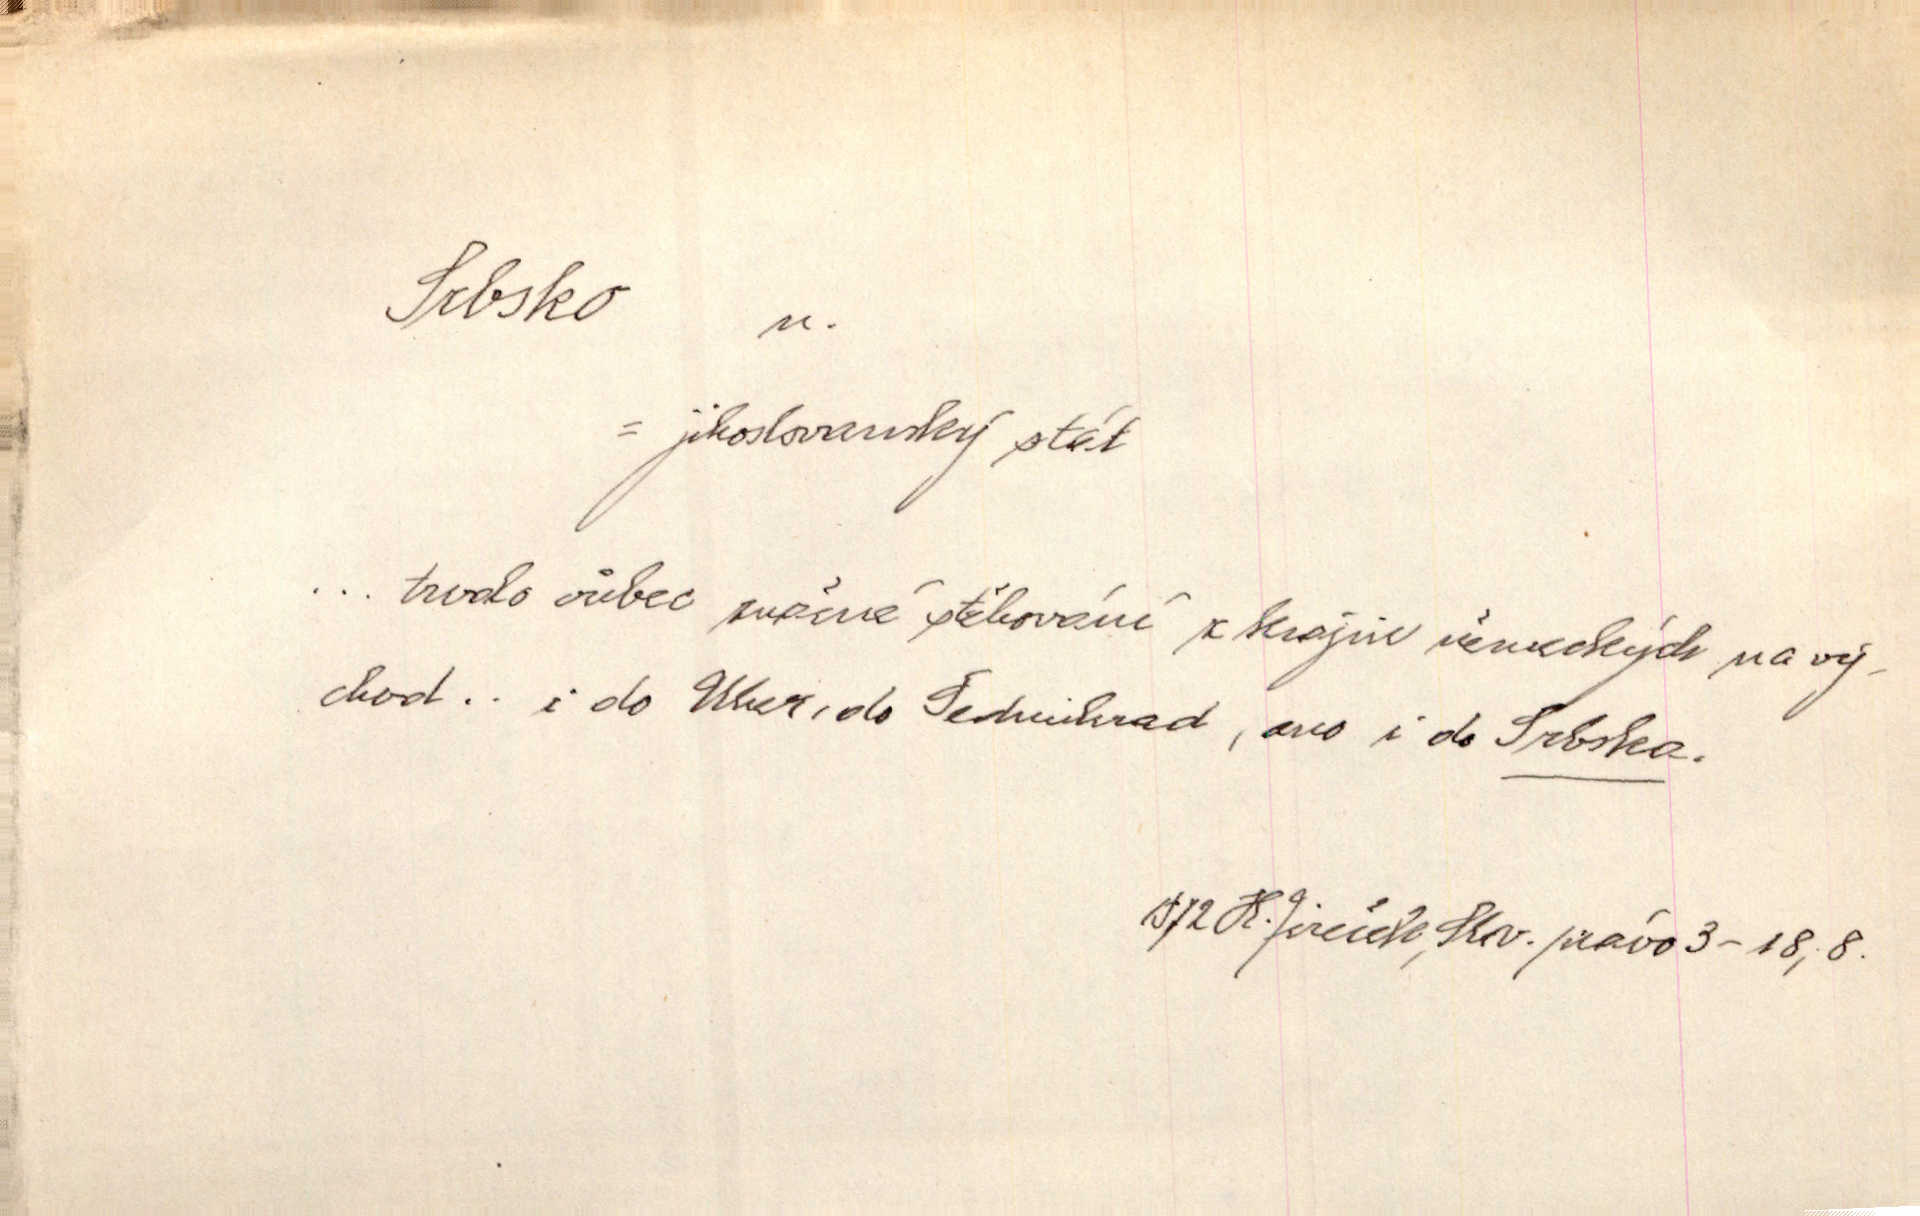 Srbsko n.
= jihoslovanský stát
... trvalo vůbec značné stěhování z krajin německých na vý-
chod .. i do Uher, do Sedmihrad, ano i do Srbska.
1872 H. Jireček, Slov. právo 3 - 18, 8.